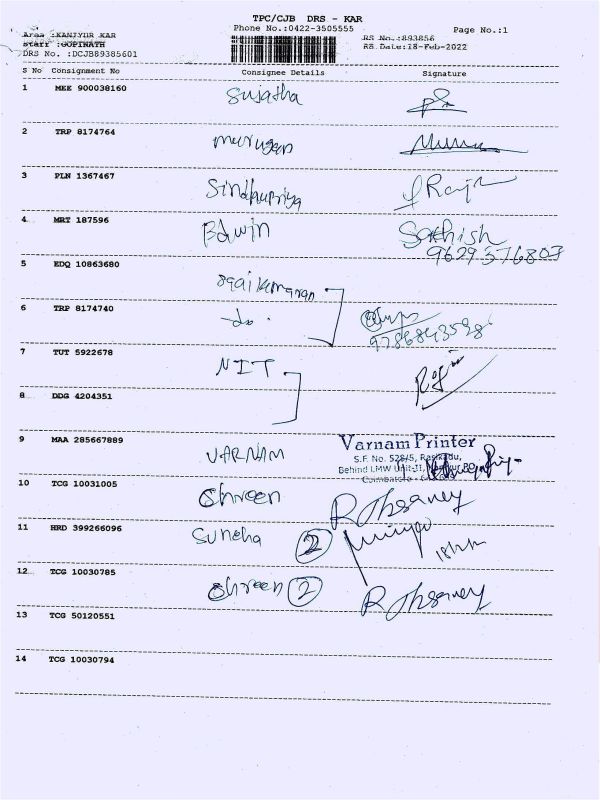 TPC/CJB DRS - KAR
Phone No.:0422-3505555 Page No.:1
Area :KANIYUR KAR RS No.:893856
Staff :GOPINATH RS Date:18-Feb-2022
DRS No. :DCJB89385601
S No Consignment No Consignee Details Signature
1 MKE 900038160 Sujatha
2 TRP 8174764 murugan
3 PLN 1367467 Sindhupriya
4 MRT 187596 Edwin Sathish
9629376807
5 EDQ 10863680
6 TRP 8174740 do.
9786843598
7 TUT 5922678 NIT
8 DDG 4204351
9 MAA 285667889 VARNAM Varnam Printer
S.F. No. 528/5,
Behind LMW Unit-II,
Coimbatore
10 TCG 10031005 Shreen
11 HRD 399266096 Suneha 2
12 TCG 10030785 Shreen 2
13 TCG 50120551
14 TCG 10030794